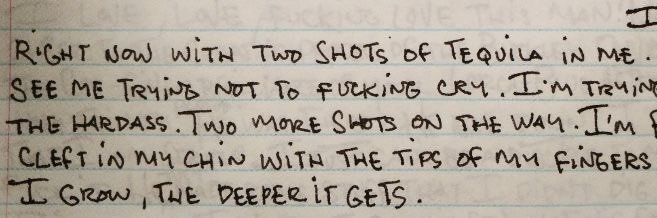 I
RIGHT NOW WITH TWO SHOTS OF TEQUILA IN ME.
SEE ME TRYING NOT TO FUCKING CRY. I'M TRYING
THE HARDASS. TWO MORE SHOTS ON THE WAY. I'M
CLEFT IN MY CHIN WITH THE TIPS OF MY FINGERS
I GROW, THE DEEPER IT GETS.